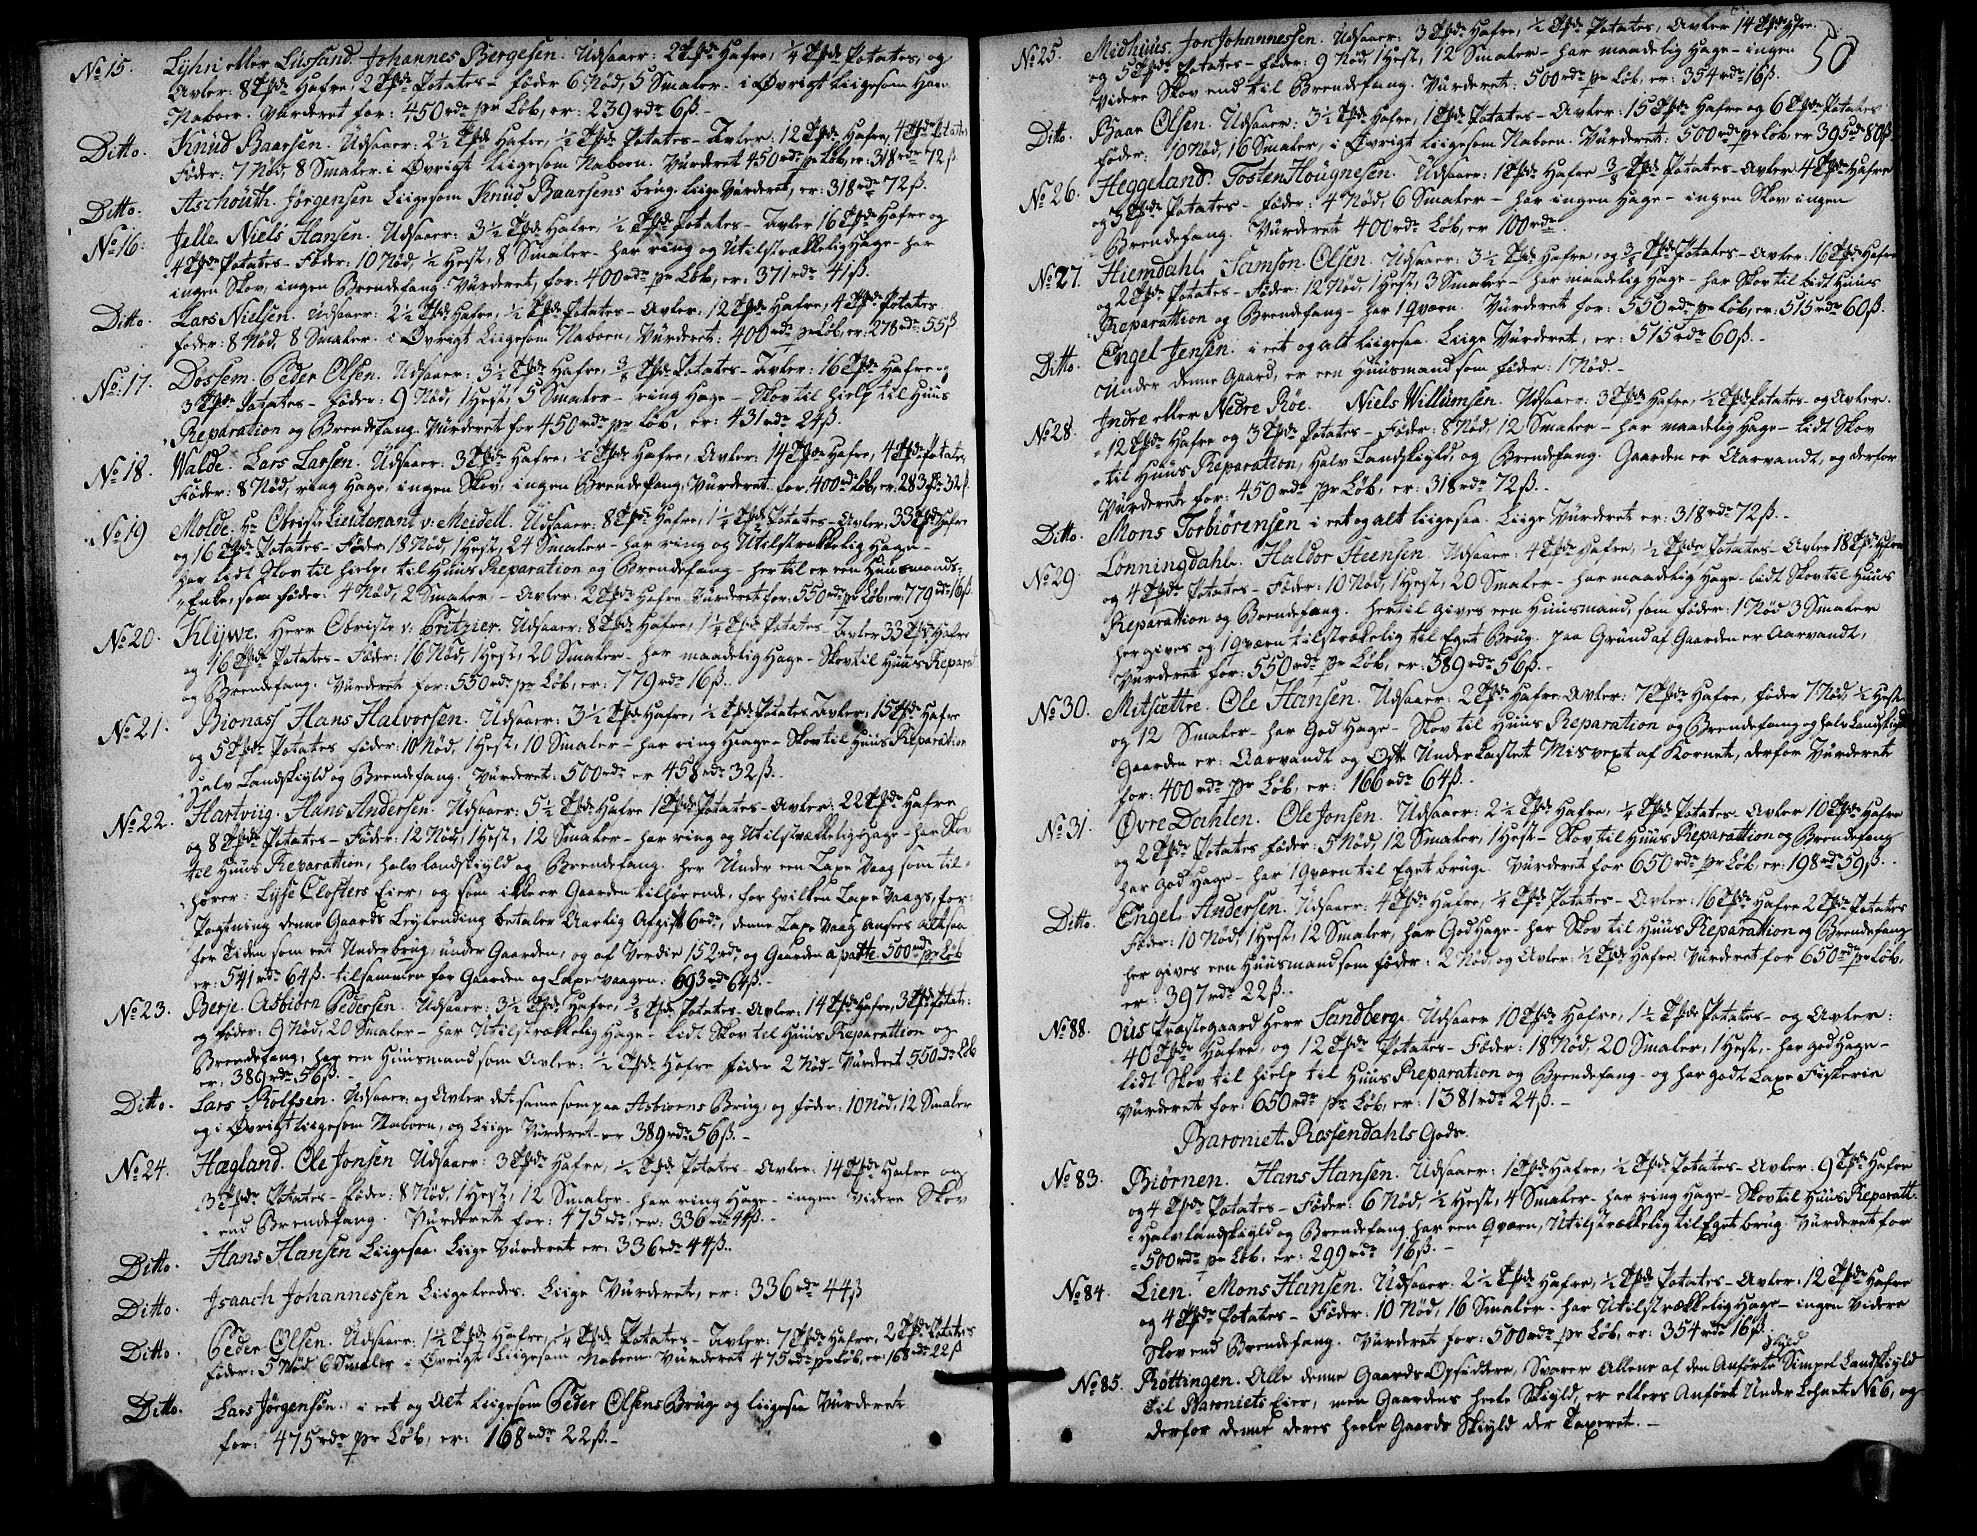 No 15. Lyhn eller Lussand. Johannes Bergesen. Udsaaer: 2 Tde Hafre, 1/4 Tde Potates, og
Avler: 8 Tde Hafre, 2 Tde Potates - føder 6 Nød, 5 Smaler - i Øvrigt liigesom Han
Naboer. Vurderet for: 450 rdr pr Løb, er: 239 rdr 6 ß.
Ditto. Knud Baarsen. Udsaaer: 2 1/2 Tde Hafre, 1/2 Tde Potates - Avler: 12 Tde Hafre, 4 Tde Potates
Føder: 7 Nød, 8 Smaler. i Øvrigt liigesom Naboen. Vurderet 450 rdr pr Løb, er: 318 rdr 72 ß.
Ditto: Aschouth Jørgensen Liigesom Knud Baarsens brug. liige Vurderet, er: 318 rdr 72 ß.
No 16: Jelle. Niels Hansen. Udsaaer: 3 1/2 Tde Hafre, 1/2 Tde Potates - Avler 16 Tde Hafre og
4 Tde Potates - Føder: 10 Nød, 1/2 Hest, 8 Smaler - har ring og Utilstrækkelig Hage - har
ingen Skov, ingen Brendefang. Vurderet, for: 400 rdr pr Løb, er: 371 rdr 41 ß.
Ditto. Lars Nielsen. Udsaaer: 2 1/2 Tde Hafre, 1/2 Tde Potates - Avler: 12 Tde Hafre, 4 Tde Potates
føder: 8 Nød, 8 Smaler. i Øvrigt Liigesom Naboen, Vurderet: 400 rdr pr Løb, er: 278 rdr 55 ß
No: 17. Døssem. Peder Olsen. Udsaaer: 3 1/2 Tde Hafre, 3/8 Tde Potates - Avler: 16 Tde Hafre og
3 Tde Potates - føder: 9 Nød, 1 Hest, 5 Smaler - ring Hage - Skov til hielp til Huus
Reparation og Brendefang. Vurderet for 450 rdr pr Løb, er: 431 rdr 24 ß.
No 18. Walde. Lars Larsen. Udsaaer: 3 Tde Hafre, 1/2 Tde Hafre, Avler: 14 Tde Hafre, 4 Tde Potates,
Føder: 8 Nød, ring Hage, ingen Skov, ingen Brendefang. Vurderet for: 400 rdr Løb, er: 283 rdr 32 ß.
No 19 Molde. Hr Obrist Lieutenant v: Meidell. Udsaaer: 8 Tde Hafre, 1 1/4 Tde Potates - Avler: 33 Tde Hafre
og 16 Tde Potates - Føder 18 Nød, 1 Hest, 24 Smaler - har ring og Utilstrækkelig Hage -
Har lidt Skov til hielp, til Huus Reparation og Brendefang - her til er een Huusmands-
Enke, som føder: 4 Nød, 2 Smaler - Avler: 2 Tde Hafre. Vurderet for: 550 rdr pr Løb, er: 779 rdr 16 ß.
No 20. Klijwe. Herr Obrist v. Critzier. Udsaaer: 8 Tde Hafre, 1 1/4 Tde Potates Avler 33 Tde Hafre
og 16 Tde Potates - Føder: 16 Nød, 1 Hest, 20 Smaler - har maadelig Hage - Skov til Huus Reparat
og Brendefang. Vurderet for: 550 rdr pr Løb, er: 779 rdr 16 ß.
No 21. Bionass Hans Halvorsen. Udsaaer: 3 1/2 Tde Hafre, 1/2 Tde Potates Avler: 15 Tde Hafre
og 5 Tde Potates føder: 10 Nød, 1 Hest, 10 Smaler - har ring Hage - Skov til Huus Reparation
Halv Landskyld og Brendefang. Vurderet: 500 rdr er 458 rdr 32 ß.
No 22. Hartviig. Hans Andersen. Udsaaer: 5 1/2 Tde Hafre 1 Tde Potates - Avler: 22 Tde Hafre
og 8 Tde Potates - Føder: 12 Nød, 1 Hest, 12 Smaler - har ring og Utilstrækkelig Hage - har Skov
til Huus Reparation, halv landskyld og Brendefang. her Under een Laxe Vaag som til-
hører: Lyse Closters Eier, og som ikke er Gaarden tilhørende, for hvilken Laxe Vaags, for-
Pagtning denne Gaards Leylending betaler Aarlig Afgift 6 rdr, denne Laxe Vaag Ansees altsaa
for Tiden som eet Underbrug, under Gaarden, og af Verdie 152 rdr, og Gaarden a parte. 500 rdr pr Løb
er: 541 rdr 64 ß. tilsammen for Gaarden og Laxe Vaagen: 693 rdr 64 ß.
No 23. Berje. Asbiorn Pedersen. Udsaaer: 3 1/2 Tde Hafre, 3/8 Tde Potates - Avler: 14 Tde Hafre, 3 Tde Potat:
og føder: 9 Nød, 20 Smaler - har Utilstrækkelig Hage - lidt Skov til Huus Reparation og
Brendefang, har een Huusmand som Avler: 1/2 Tde Hafre føder 2 Nød - Vurderet 550 rdr Løb
er: 389 rdr 56 ß.
Ditto. Lars Rolfsen. Udsaaer, og Avler det same som paa Asbiorns Brug, og føder: 10 Nød, 12 Smaler
og i Øvrigt liigesom Naboen, og Liige Vurderet - er 389 rdr 56 ß.
No 24. Hægland. Ole Jonsen Udsaaer: 3 Tde Hafre, 1/2 Tde Potates - Avler: 14 Tde Hafre og
3 Tde Potates - føder: 8 Nød, 1 Hest, 12 Smaler - har ring Hage - ingen Videre Skov
end Brendefang. Vurderet for: 475 rdr, er: 336 rdr 44 ß.
Ditto. Hans Hansen Liigesaa. Liige Vurderet er: 336 rdr 44 ß.
Ditto. Isaach Johannessen Liigeledes. Liige Vurderet, er: 336 rdr 44 ß
Ditto. Peder Olsen. Udsaaer: 1 1/2 Tde Hafre, 1/4 Tde Potates - Avler: 7 Tde Hafre, 2 Tde Potates
føder: 5 Nød 6 Smaler i Øvrigt Liigesom Naboen Vurderet 475 rdr pr Løb, er: 168 rdr 22 ß
Ditto. Lars Jørgensøn. i eet og Alt liigesom Peder Olsens Brug og liigesaa Vurderet
for: 475 rdr pr Løb, er: 168 rdr 22 ß.
50
No 25. Midhuus. Jon Johannessen. Udsaaer: 3 Tde Hafre, 1/2 Tde Potates, Avler 14 Tde Hfre.
og 5 Tde Potates - føder: 9 Nød, 1 Hest, 12 Smaler - har maadelig Hage - ingen
Videre Skov end til Brendefang. Vurderet: 500 rdr pr Løb, er: 354 rdr 16 ß.
Ditto. Baar Olsen. Udsaaer: 3 1/2 Tde Hafre, 1 Tde Potates - Avler: 15 Tde Hafre og 6 Tde Potates
føder: 10 Nød, 16 Smaler, i Øvrigt liigesom Naboen. Vurderet: 500 rdr pr Løb er 395 rdr 80 ß.
No 26. Heggeland. Tosten Hougnesen. Udsaaer: 1 Tde Hafre 3/8 Tde Potates - Avler 4 Tde Hafre
og 3 Tde Potates - føder: 4 Nød, 6 Smaler - har ingen Hage - ingen Skov, ingen
Brendefang - Vurderet 400 rdr Løb, er 100 rdr.
No 27. Hiemdahl. Samson Olsen. Udsaaer: 3 1/2 Tde Hafre, og 3/8 Tde Potates - Avler: 16 Tde Hafre
og 2 Tde Potates - Føder: 12 Nød 1 Hest, 3 Smaler - har maadelig Hage - har Skov til lidt Huus
Reparattion og Brendefang - har 1 qværn. Vurderet for: 550 rdr pr Løb, er: 515 rdr 60 ß.
Ditto. Engel Jensen. i eet og alt liigesaa. Liige Vurderet, er: 515 rdr 60 ß.
Under denne Gaard, er een Huusmand som føder: 1 Nød.
No 28. Indre eller Nedre Røe. Niels Willumsen. Udsaaer: 3 Tde Hafre, 1/2 Tde Potates - og Avler.
12 Tde Hafre og 3 Tde Potates - Føder: 8 Nød, 12 Smaler - har maadelig Hage - lidt Skov
til Huus Reparation, Halv Landskyld, og Brendefang. Gaarden er Aarvandt, og derfor
Vurderet for: 450 rdr pr Løb, er: 318 rdr 72 ß.
Ditto. Mons Torbiørensen i eet og alt liigesaa. Liige Vurderet er: 318 rdr 72 ß.
No 29. Lønningdahl. Haldor Steensen. Udsaaer: 4 Tde Hafre, 1/2 Tde Potates - Avler 18 Tde Hfre
og 4 Tde Potates - Føder: 10 Nød, 1 Hest, 20 Smaler - har maadelig Hage - lidt Skov til Huus
Reparattion og Brendefang. hertil gives een Huusmand, som føder: 1 Nød 3 Smaler
her gives og 1 qværn tilstrækelig til Eget Brug. paa Grund af Gaarden er Aarvandt,
Vurderet for: 550 rdr pr Løb, er: 389 rdr 56 ß.
No 30. Mitsættre. Ole Hansen. Udsaaer: 2 Tde Hafre Avler: 7 Tde Hafre, føder 7 Nød, 1/2 Hest
og 12 Smaler - har God Hage - Skov til Huus Reparation og Brendefang og halv Landskyld
Gaarden er: Aarvandt og Ofte Underkastet Misvext af Kornet, derfor Vurderet
for: 400 rdr pr Løb, er: 166 rdr 64 ß.
No 31. Øvre Dahlen. Ole Jonsen. Udsaaer: 2 1/2 Tde Hafre, 1/4 Tde Potates - Avler 10 Tde Hafre
og 2 Tde Potates føder: 5 Nød, 12 Smaler, 1 Hest - Skov til Huus Reparattion og Brendefang
har God Hage - har 1 qværn til Eget brug. Vurderet for 650 rdr pr Løb, er: 198 rdr 59 ß.
Ditto. Engel Andersen. Udsaaer: 4 Tde Hafre, 1/4 Tde Potates - Avler: 16 Tde Hafre 2 Tde Potates
Føder: 10 Nød, 1 Hest, 12 Smaler, har God Hage - har Skov til Huus Reparattion og Brendefang
her gives een Huusmand som føder: 2 Nød og Avler: 1/2 Tde Hafre. Vurderet for 650 rdr pr Løb,
er: 397 rdr 22 ß.
No 88. Ous Præstegaard Herr Sandberg. Udsaaer 10 Tde Hafre, 1 1/2 Tde Potates - og Avler:
40 Tde Hafre, og 12 Tde Potates - Føder: 18 Nød, 20 Smaler, 1 Hest, - har God Hage -
lidt Skov til hielp til Huus Reparation og Brendefang - og har godt Laxe Fiskerie
Vurderet for: 650 rdr pr Løb, er: 1381 rdr 24 ß.
Baroniet Rossendahls Gods.
No 83. Biørnen. Hans Hansen. Udsaaer: 1 Tde Hafre, 1/2 Tde Potates - Avler: 9 Tde Hafre
og 4 Tde Potates - Føder: 6 Nød, 1/2 Hest, 4 Smaler - har ring Hage - Skov til Huus Reparatt.
Halv landskyld og Brendefang, har een qværn, Utilstrækkelig til Eget brug. Vurderet for
500 rdr pr Løb, er: 299 rdr 16 ß.
No 84. Lien. Mons Hansen. Udsaaer: 2 1/2 Tde Hafre, 1/2 Tde Potates - Avler: 12 Tde Hafre
og 4 Tde Potates - Føder: 10 Nød, 16 Smaler - har Utilstrækkelig Hage - ingen Videre
Skov end Brendefang. Vurderet for: 500 rdr pr Løb, er: 354 rdr 16 ß.
No 85. Røttingen. Alle denne Gaards Opsiddere, Svarer Allene af den Anførte Simpel Landskyld
til Baroniets Eier, men Gaardens heele Skyld, er ellers Anført Under Lehnet No 6, og
derfor denne deres heele Gaards Skyld der Taxeret.